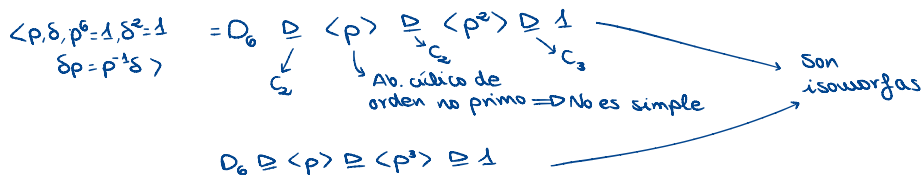 <ρ, δ, ρ⁶=1, δ²=1 = D₆ ⊵ <ρ> ⊵ <ρ²> ⊵ 1
δρ = ρ⁻¹δ >
C₂ C₂ C₃
Ab. cíclico de
orden no primo ⇒ No es simple
Son
isomorfas
D₆ ⊵ <ρ> ⊵ <ρ³> ⊵ 1